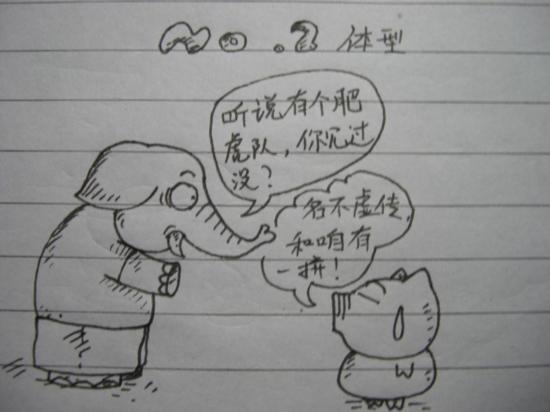 No.2 体型
听说有个肥
虎队，你见过
没？
名不虚传，
和咱有
一拼！